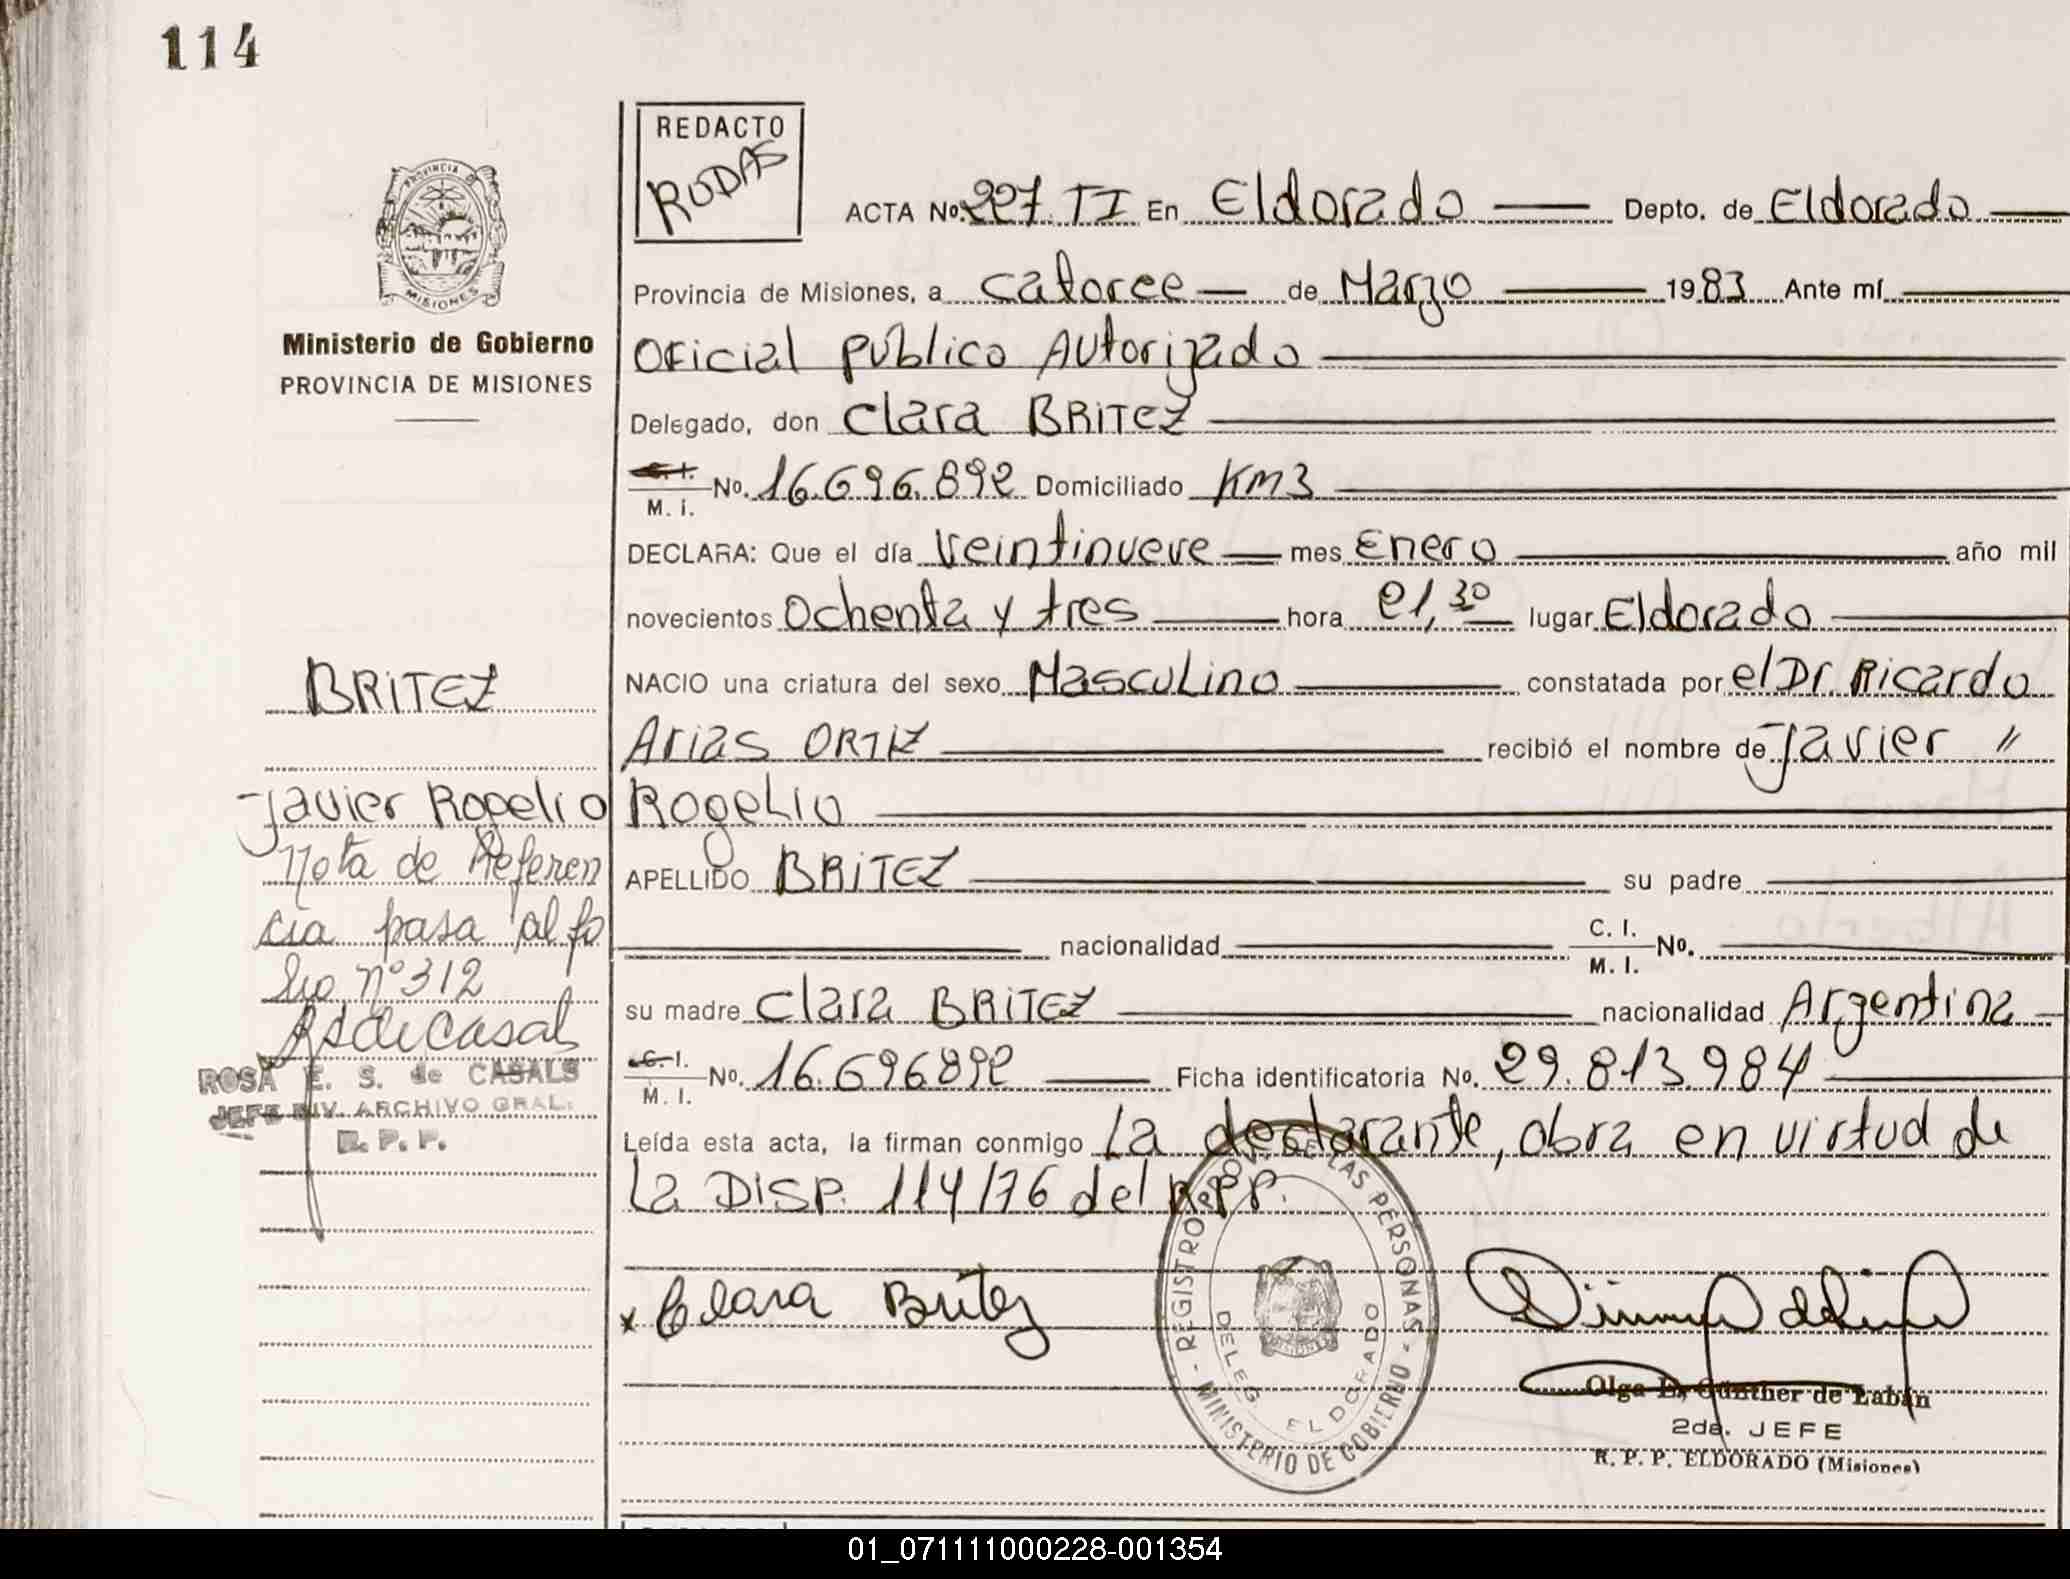 114
REDACTO
RODAS
ACTA No. 227. TI En Eldorado Depto. de Eldorado
Provincia de Misiones, a catorce de Marzo 1983 Ante mí
Oficial publico Autorizado
Delegado, don Clara BRITEZ
C. I.
M. I. No. 16.696.892 Domiciliado KM3
DECLARA: Que el día veintinueve mes Enero año mil
novecientos Ochenta y tres hora 21,30 lugar Eldorado
NACIO una criatura del sexo Masculino constatada por el Dr. Ricardo
Arias ORTIZ recibió el nombre de Javier "
Rogelio
APELLIDO BRITEZ su padre
nacionalidad C. I. M. I. No.
su madre Clara BRITEZ nacionalidad Argentina
C. I.
M. I. No. 16.696892 Ficha identificatoria No. 29.813.984
Leída esta acta, la firman conmigo la declarante, obra en virtud de
la DISP. 114/76 del RPP.
x Clara Britez
REGISTRO PROV. DE LAS PERSONAS - MINISTERIO DE GOBIERNO -
DELEG. ELDORADO
Olga E. Günther de Labán
2da. JEFE
R. P. P. ELDORADO (Misiones)
PROVINCIA D
MISIONES
Ministerio de Gobierno
PROVINCIA DE MISIONES
BRITEZ
Javier Rogelio
Nota de Referen
cia pasa al fo
lio nº 312
ROSA E. S. de CASALS
JEFE DIV. ARCHIVO GRAL.
R. P. P.
01_071111000228-001354